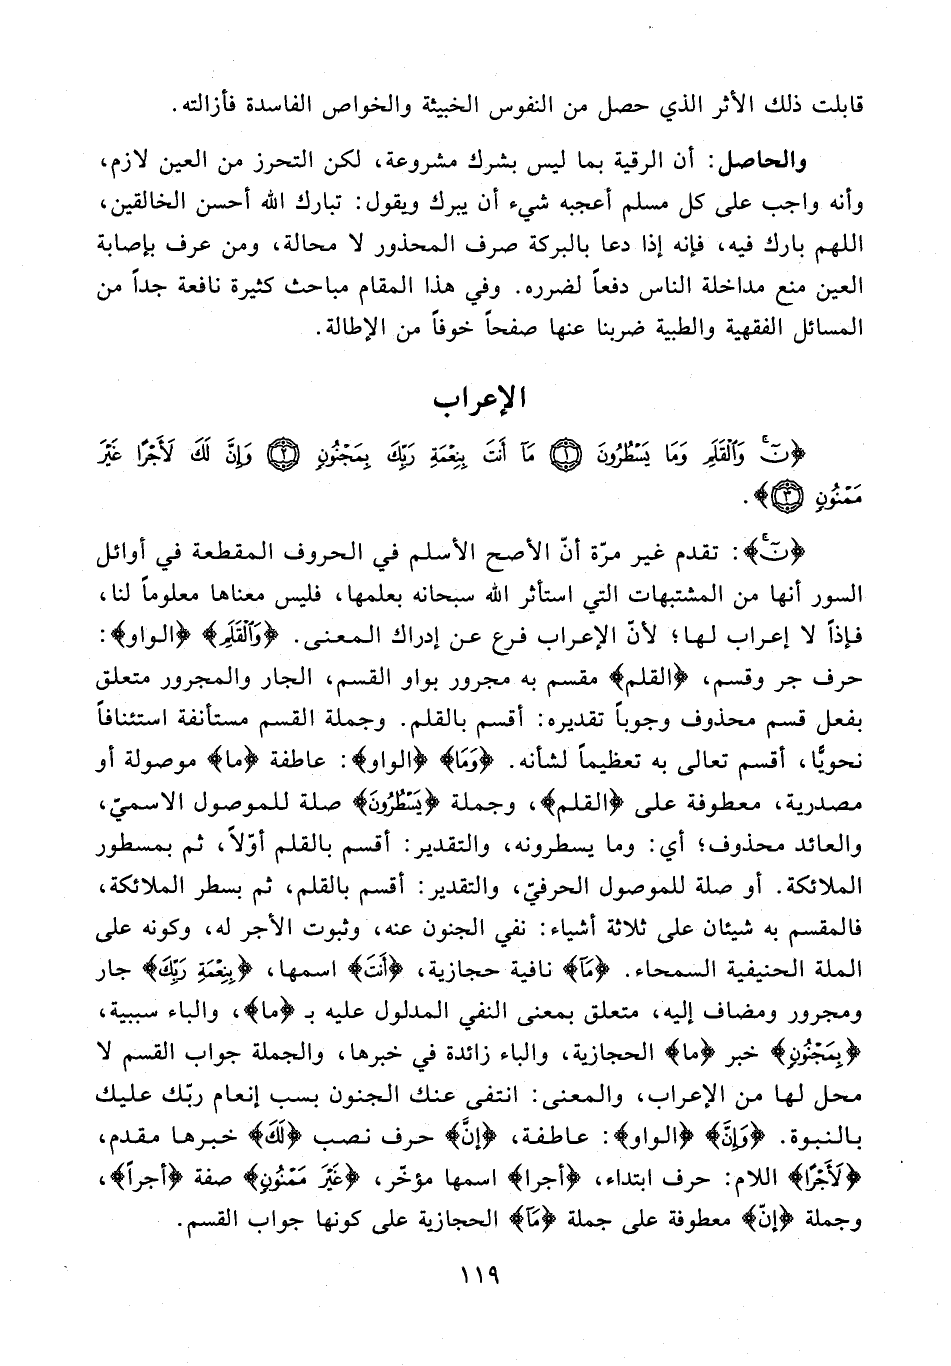 قابلت ذلك الأثر الذي حصل من النفوس الخبيثة والخواص الفاسدة فأزالته.
والحاصل: أن الرقية بما ليس بشرك مشروعة، لكن التحرز من العين لازم،
وأنه واجب على كل مسلم أعجبه شيء أن يبرك ويقول: تبارك الله أحسن الخالقين،
اللهم بارك فيه، فإنه إذا دعا بالبركة صرف المحذور لا محالة، ومن عرف بإصابة
العين منع مداخلة الناس دفعاً لضرره. وفي هذا المقام مباحث كثيرة نافعة جداً من
المسائل الفقهية والطبية ضربنا عنها صفحاً خوفاً من الإطالة.
الإعراب
﴿نٓ وَٱلْقَلَمِ وَمَا يَسْطُرُونَ ۝١ مَآ أَنتَ بِنِعْمَةِ رَبِّكَ بِمَجْنُونٍ ۝٢ وَإِنَّ لَكَ لَأَجْرًا غَيْرَ
مَمْنُونٍ ۝٣﴾.
﴿نٓ﴾: تقدم غير مرّة أنّ الأصح الأسلم في الحروف المقطعة في أوائل
السور أنها من المشتبهات التي استأثر الله سبحانه بعلمها، فليس معناها معلوماً لنا،
فإذاً لا إعراب لها؛ لأنّ الإعراب فرع عن إدراك المعنى. ﴿وَٱلْقَلَمِ﴾ ﴿الواو﴾:
حرف جر وقسم، ﴿القلم﴾ مقسم به مجرور بواو القسم، الجار والمجرور متعلق
بفعل قسم محذوف وجوباً تقديره: أقسم بالقلم. وجملة القسم مستأنفة استئنافاً
نحويًّا، أقسم تعالى به تعظيماً لشأنه. ﴿وَمَا﴾ ﴿الواو﴾: عاطفة ﴿ما﴾ موصولة أو
مصدرية، معطوفة على ﴿القلم﴾، وجملة ﴿يَسْطُرُونَ﴾ صلة للموصول الاسميّ،
والعائد محذوف؛ أي: وما يسطرونه، والتقدير: أقسم بالقلم أوّلاً، ثم بمسطور
الملائكة. أو صلة للموصول الحرفيّ، والتقدير: أقسم بالقلم، ثم بسطر الملائكة،
فالمقسم به شيئان على ثلاثة أشياء: نفي الجنون عنه، وثبوت الأجر له، وكونه على
الملة الحنيفية السمحاء. ﴿مَآ﴾ نافية حجازية، ﴿أَنتَ﴾ اسمها، ﴿بِنِعْمَةِ رَبِّكَ﴾ جار
ومجرور ومضاف إليه، متعلق بمعنى النفي المدلول عليه بـ ﴿ما﴾، والباء سببية،
﴿بِمَجْنُونٍ﴾ خبر ﴿ما﴾ الحجازية، والباء زائدة في خبرها، والجملة جواب القسم لا
محل لها من الإعراب، والمعنى: انتفى عنك الجنون بسب إنعام ربّك عليك
بالنبوة. ﴿وَإِنَّ﴾ ﴿الواو﴾: عاطفة، ﴿إنَّ﴾ حرف نصب ﴿لَكَ﴾ خبرها مقدم،
﴿لَأَجْرًا﴾ اللام: حرف ابتداء، ﴿أجرا﴾ اسمها مؤخّر، ﴿غَيْرَ مَمْنُونٍ﴾ صفة ﴿أجراً﴾،
وجملة ﴿إنّ﴾ معطوفة على جملة ﴿مَآ﴾ الحجازية على كونها جواب القسم.
١١٩